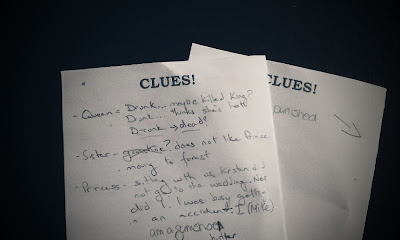 CLUES!
- Queen = Drunk... maybe killed King?
Drunk... thinks she's hot
Drunk → dead?
- Sister - goodtime? does not like Prince
moving to forest
- Princess - sitting with us Kirsten did
not go to the wedding. Nor
did I. I was busy getting
in an accident. I (Mike)
am a gunshot
hunter
CLUES!
punished